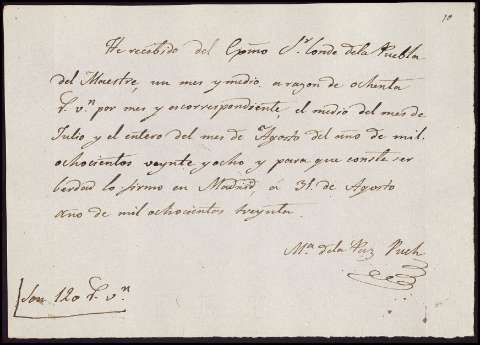 10
He recebido del Exmo Sr. Conde dela Puebla
del Maestre, un mes y medio a razon de ochenta
r. vn por mes y es correspondiente, el medio del mes de
Julio y el entero del mes de Agosto del año de mil
ochocientos veynte y ocho y para que conste ser
berdad lo firmo en Madrid, á 31. de Agosto
año de mil ochocientos treynta.
Ma. dela Paz Puch
Son 120 r. vn